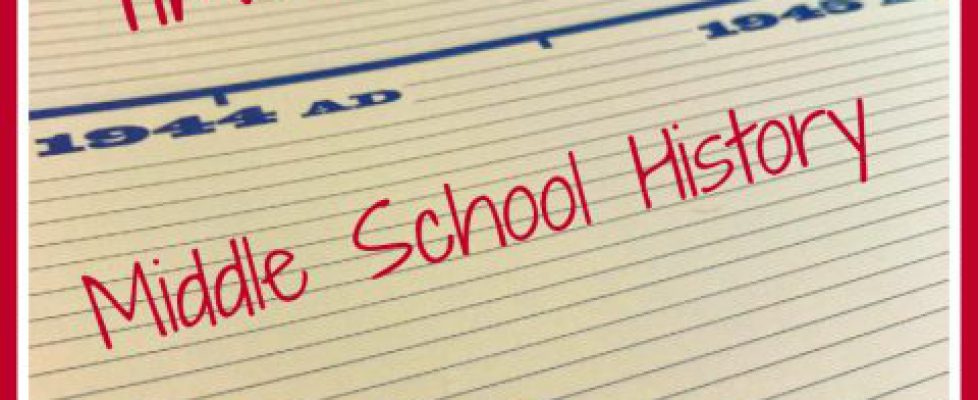 1944 AD
1945
Middle School History